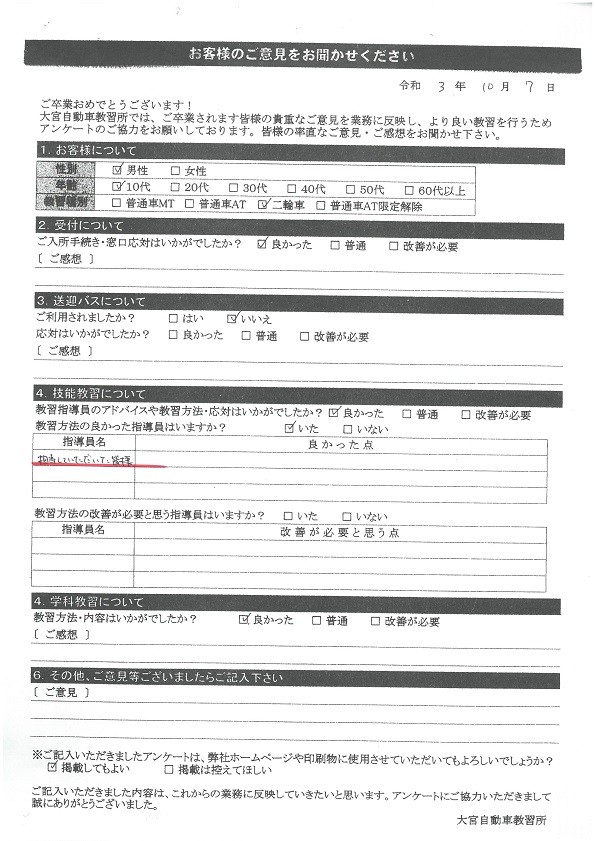 お客様のご意見をお聞かせください
令和 3 年 10 月 7 日
ご卒業おめでとうございます！
大宮自動車教習所では、ご卒業されます皆様の貴重なご意見を業務に反映し、より良い教習を行うため
アンケートのご協力をお願いしております。皆様の率直なご意見・ご感想をお聞かせ下さい。
1. お客様について
性別 ☑男性 □女性
年齢 ☑10代 □20代 □30代 □40代 □50代 □60代以上
教習種別 □普通車MT □普通車AT ☑二輪車 □普通車AT限定解除
2. 受付について
ご入所手続き・窓口応対はいかがでしたか？ ☑良かった □普通 □改善が必要
〔 ご感想 〕
3. 送迎バスについて
ご利用されましたか？ □はい ☑いいえ
応対はいかがでしたか？ □良かった □普通 □改善が必要
〔 ご感想 〕
4. 技能教習について
教習指導員のアドバイスや教習方法・応対はいかがでしたか？ ☑良かった □普通 □改善が必要
教習方法の良かった指導員はいますか？ ☑いた □いない
指導員名 良かった点
担当していただいた皆様
教習方法の改善が必要と思う指導員はいますか？ □いた □いない
指導員名 改善が必要と思う点
4. 学科教習について
教習方法・内容はいかがでしたか？ ☑良かった □普通 □改善が必要
〔 ご感想 〕
6. その他、ご意見等ございましたらご記入下さい
〔 ご意見 〕
※ご記入いただきましたアンケートは、弊社ホームページや印刷物に使用させていただいてもよろしいでしょうか？
☑掲載してもよい □掲載は控えてほしい
ご記入いただきました内容は、これからの業務に反映していきたいと思います。アンケートにご協力いただきまして
誠にありがとうございました。
大宮自動車教習所